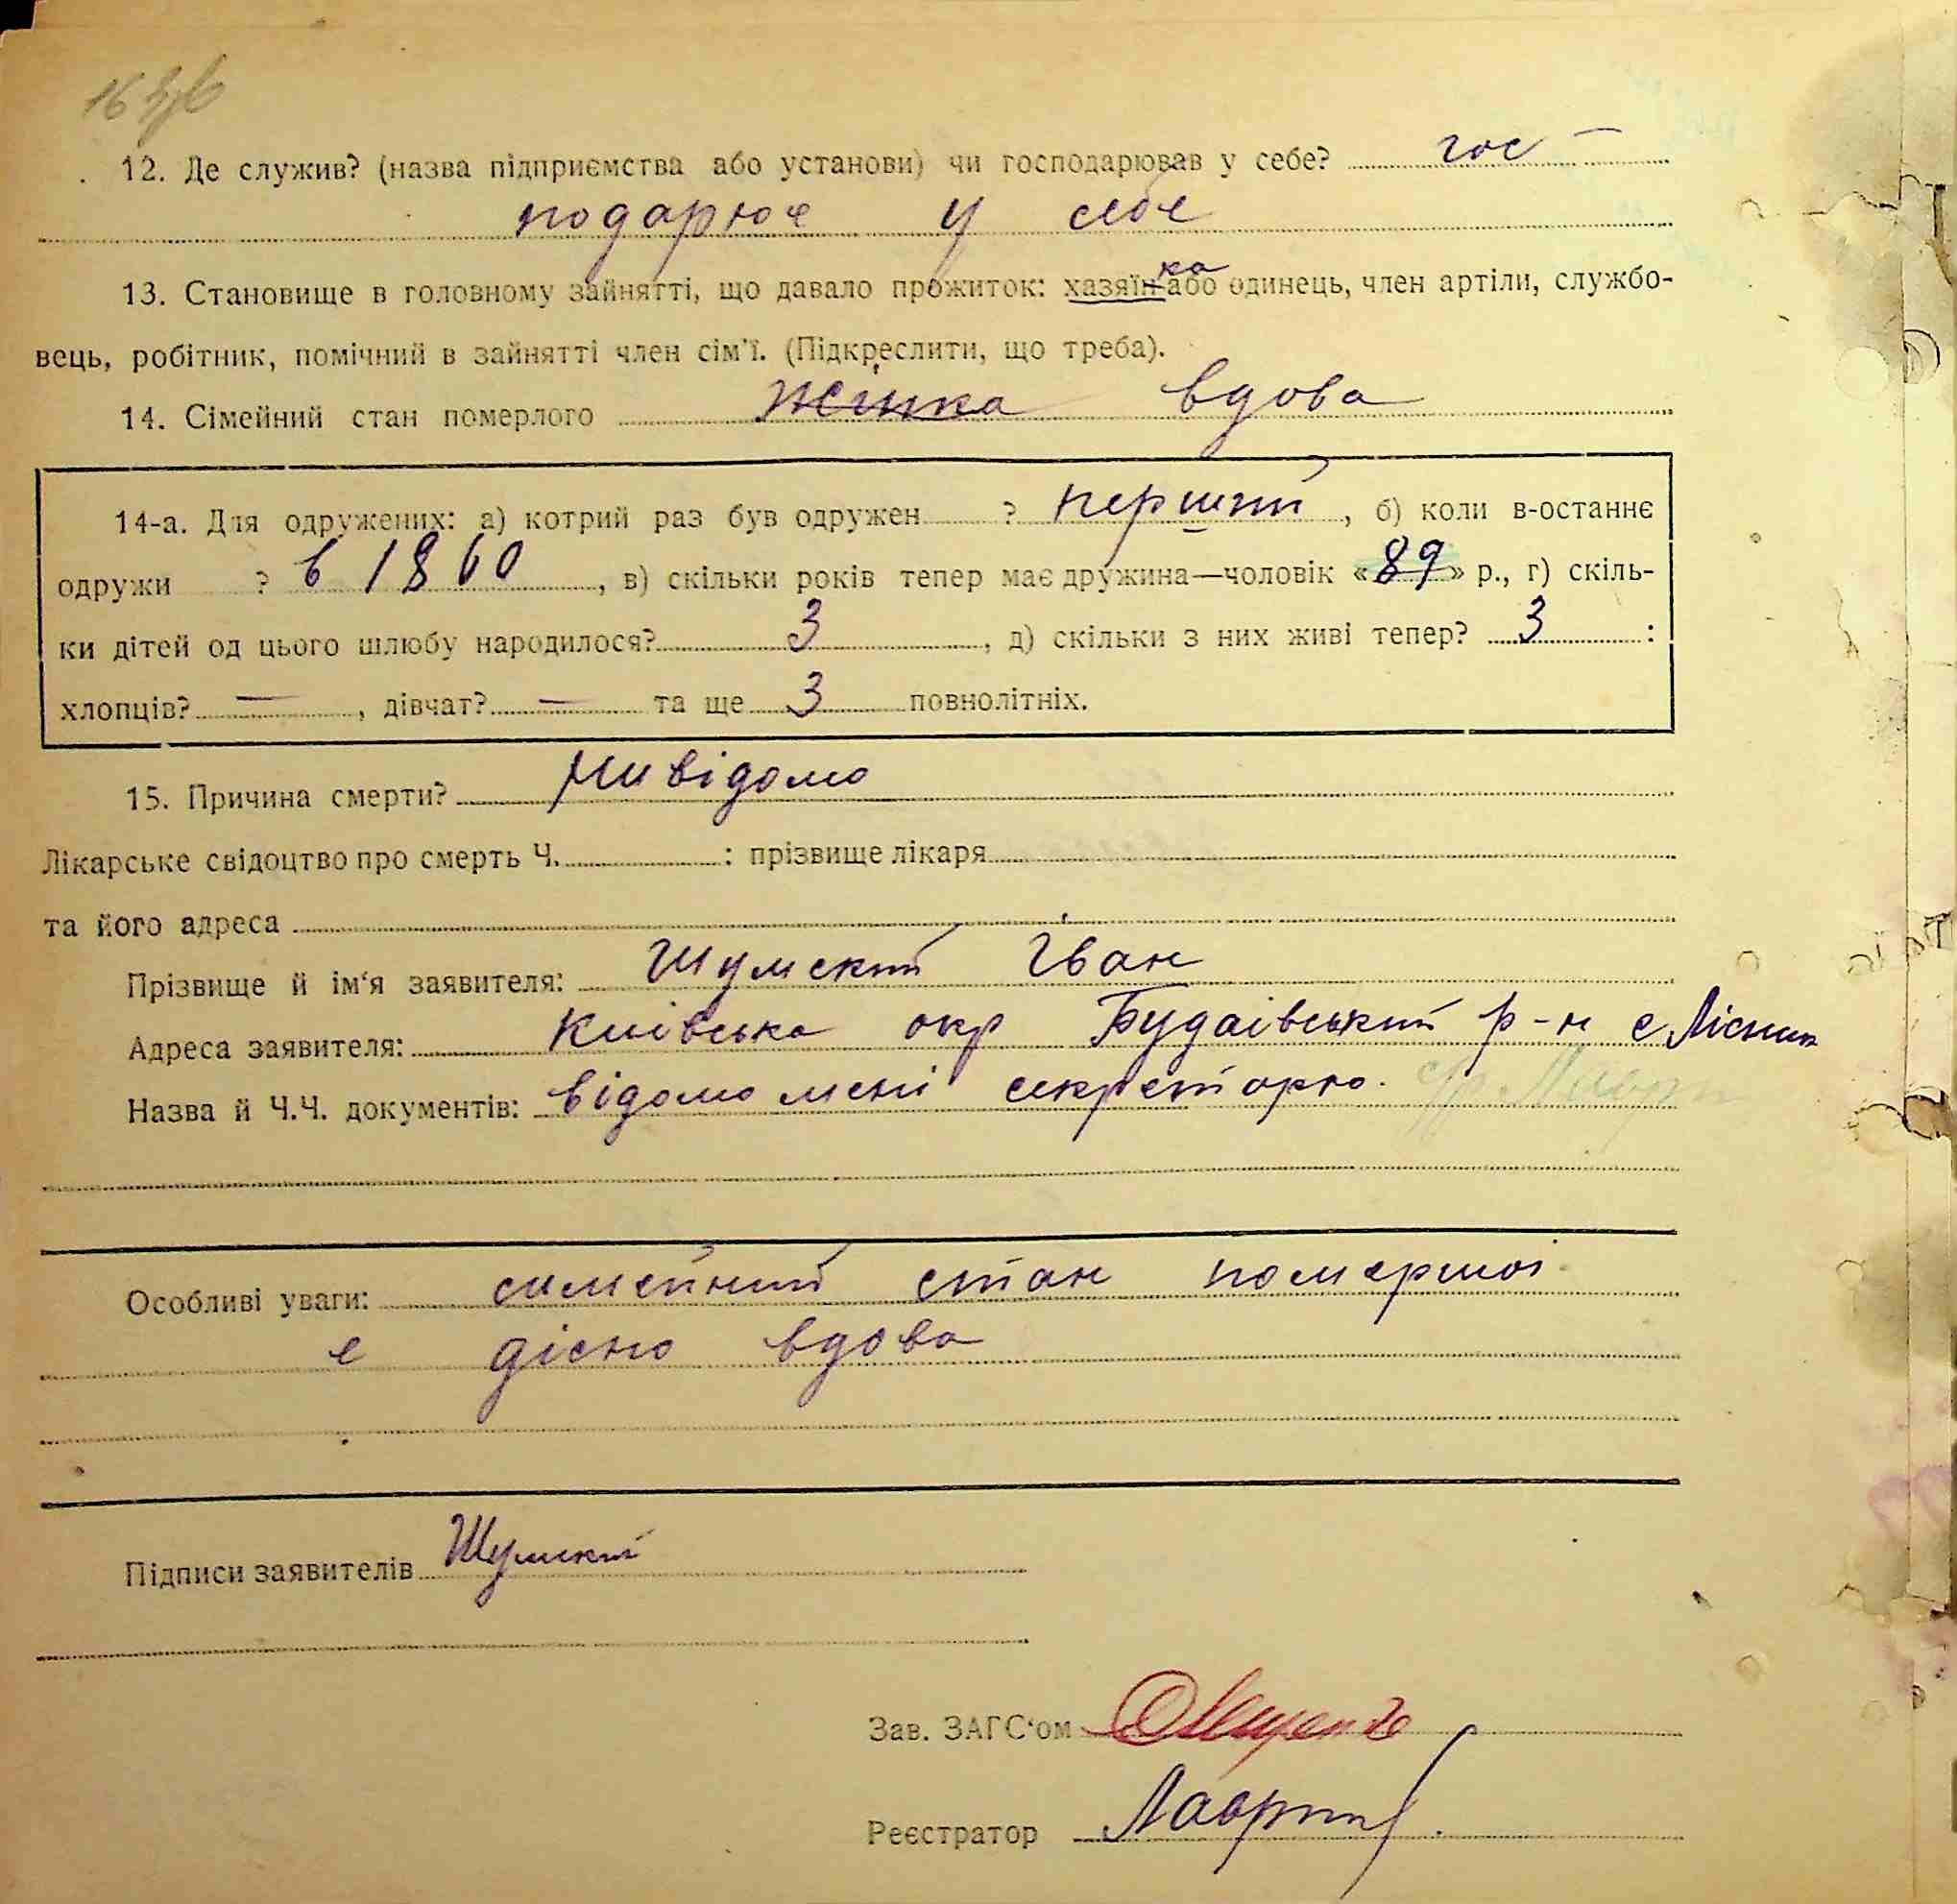 12. Де служив? (назва підприємства або установи) чи господарював у себе? гос-
подарює у себе
13. Становище в головному зайнятті, що давало прожиток: хазяїнка або одинець, член артіли, службо-
вець, робітник, помічний в зайнятті член сім'ї. (Підкреслити, що треба).
14. Сімейний стан померлого жінка вдова
14-а. Для одружених: а) котрий раз був одружен ? перший, б) коли в-останнє
одружи ? в 1860, в) скільки років тепер має дружина—чоловік «89» р., г) скіль-
ки дітей од цього шлюбу народилося? 3, д) скільки з них живі тепер? 3 :
хлопців? —, дівчат? — та ще 3 повнолітніх.
15. Причина смерти? нивідомо
Лікарське свідоцтво про смерть Ч. : прізвище лікаря
та його адреса
Прізвище й ім'я заявителя: Шумский Іван
Адреса заявителя: Київська окр Будаівський р-н с Лісники
Назва й Ч.Ч. документів: відомо мені секреторю.
Особливі уваги: симейний стан помершої
е дісно вдова
Підписи заявителів Шумский
Зав. ЗАГС'ом
Реєстратор